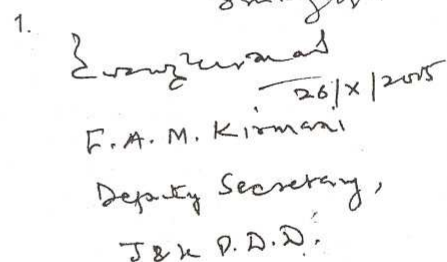 1.
26/X/2005
F.A.M. Kirmani
Deputy Secretary,
J&K P.D.D.